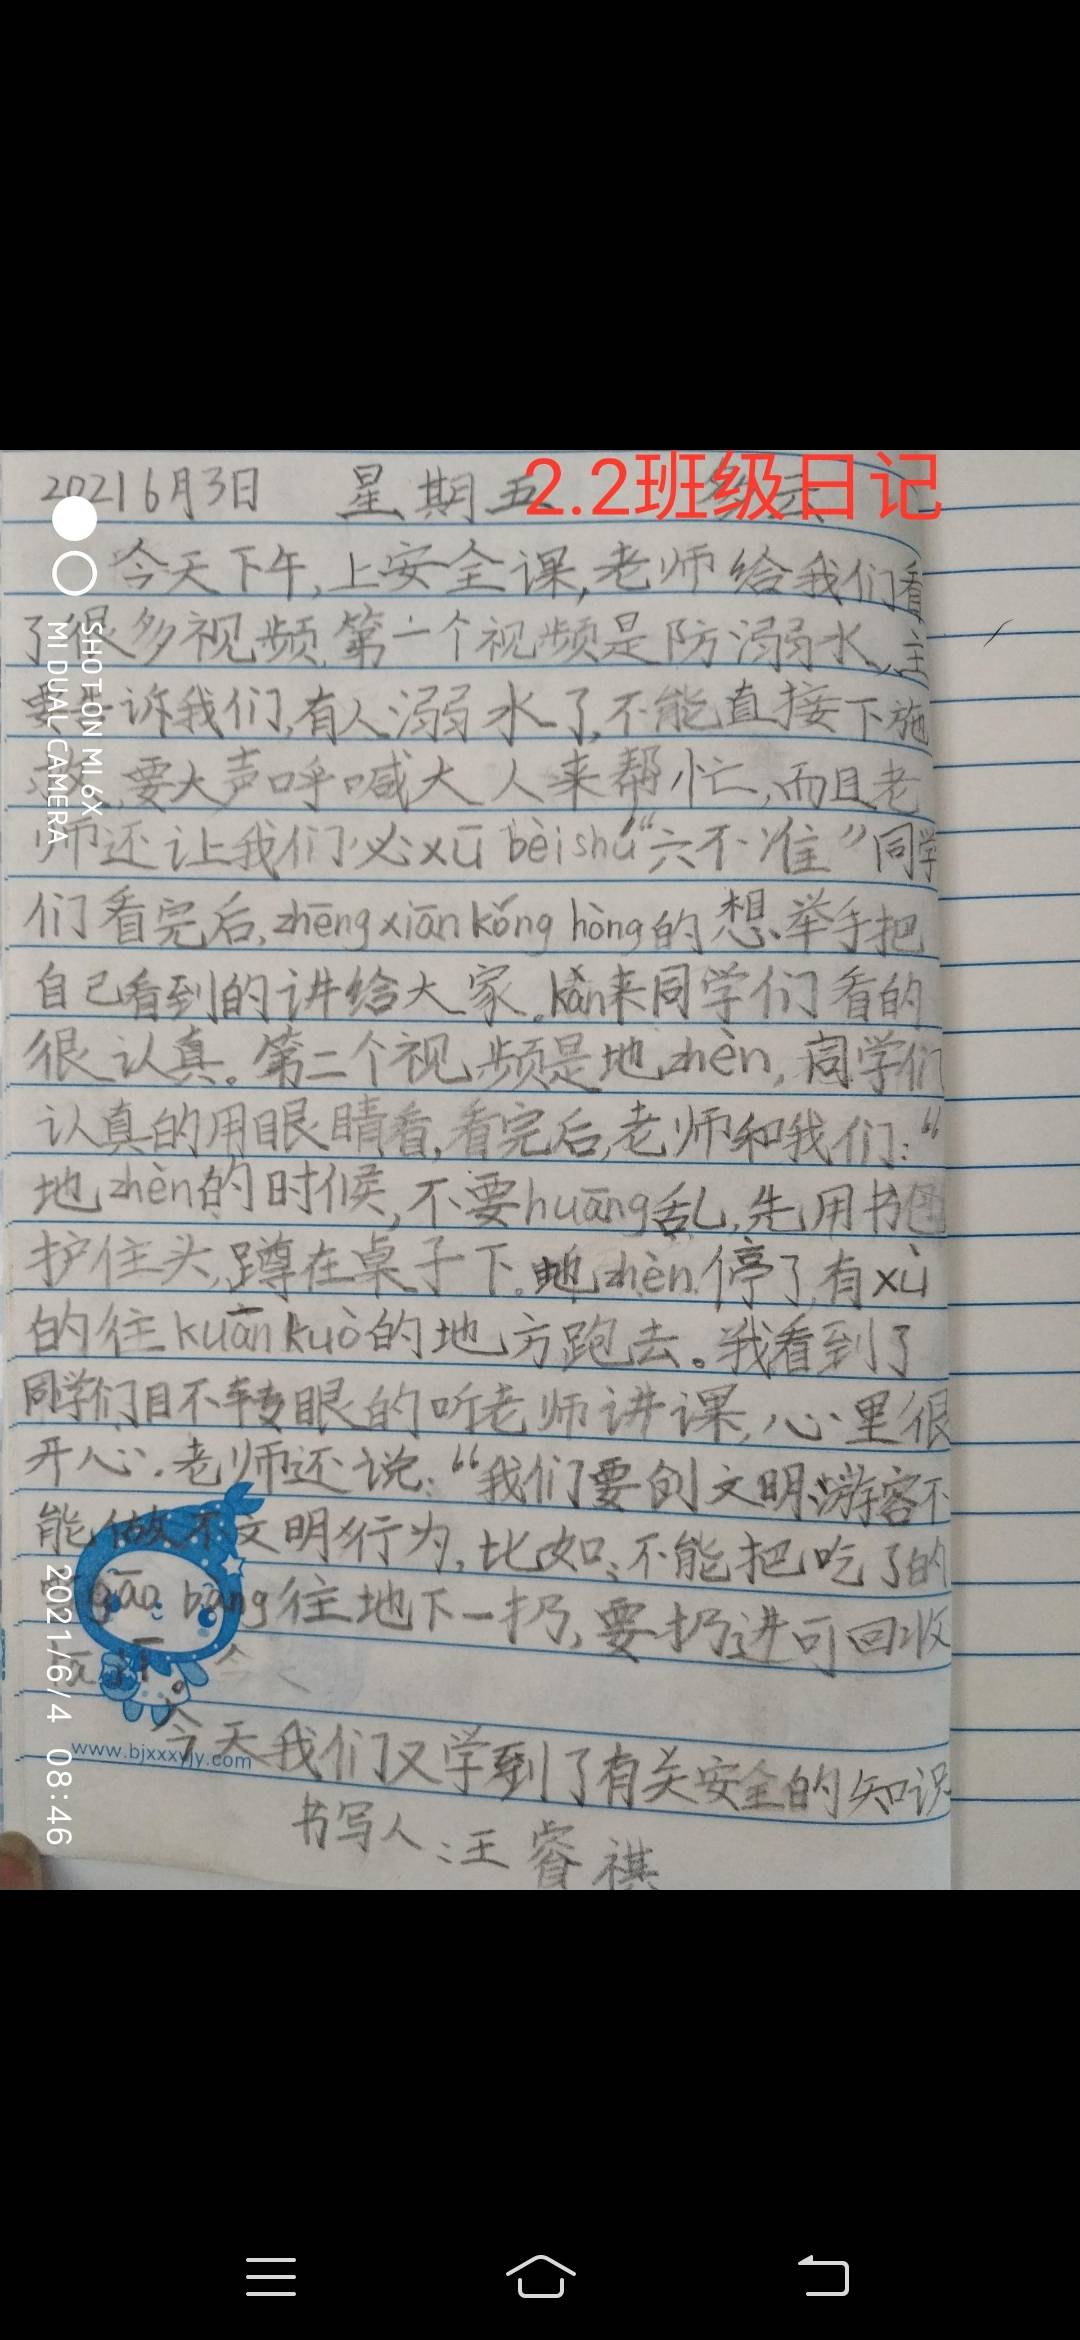 2.2班级日记
20216月3日 星期五 多云
今天下午,上安全课,老师给我们看
了很多视频,第一个视频是防溺水,主
要告诉我们,有人溺水了,不能直接下施
救,要大声呼喊大人来帮忙,而且老
师还让我们必xū bèi shú“六不准”同学
们看完后,zhēng xiān kǒng hòng的想举手把
自己看到的讲给大家。kàn来同学们看的
很认真。第二个视频是地zhèn,同学们
认真的用眼睛看,看完后,老师和我们:“
地zhèn的时候,不要huāng乱,先用书包
护住头,蹲在桌子下。地zhèn停了,有xù
的往kuān kuò的地方跑去。我看到了
同学们目不转眼的听老师讲课,心里很
开心。老师还说:“我们要创文明,游客不
能做不文明行为,比如:不能把吃了的
gāo bàng往地下一扔,要扔进可回收
今天我们又学到了有关安全的知识
书写人:王睿祺
SHOT ON MI 6X
MI DUAL CAMERA
2021/6/4 08:46
www.bjxxxyjy.com